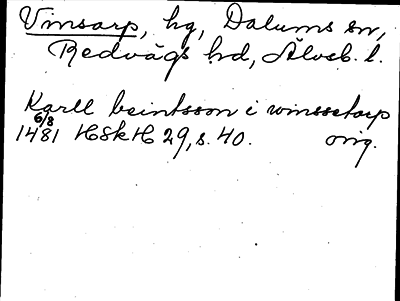 Vinsarp, hg, Dalums sn,
Redvägs hd, Älvsb. l.
Karll beintsson i winsstorp
6/8
1481 HSkH 29, s. 40. orig.